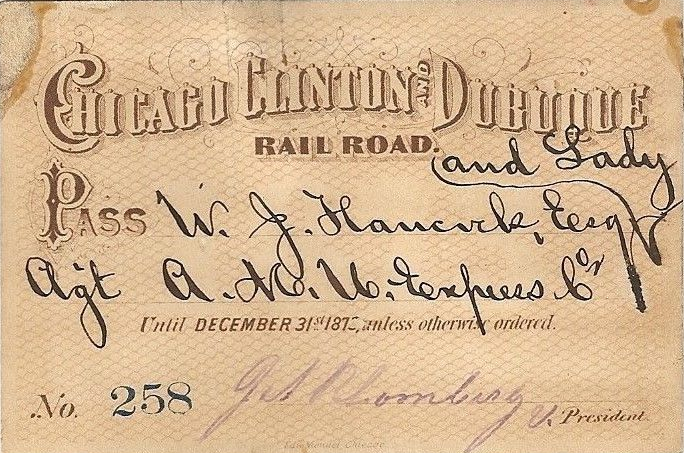 CHICAGO CLINTON AND DUBUQUE
RAIL ROAD.
and Lady
PASS W. J. Hancock, Esq
Agt A. M. U. Express Co
Until DECEMBER 31st 187, unless otherwise ordered.
No. 258
V. President.